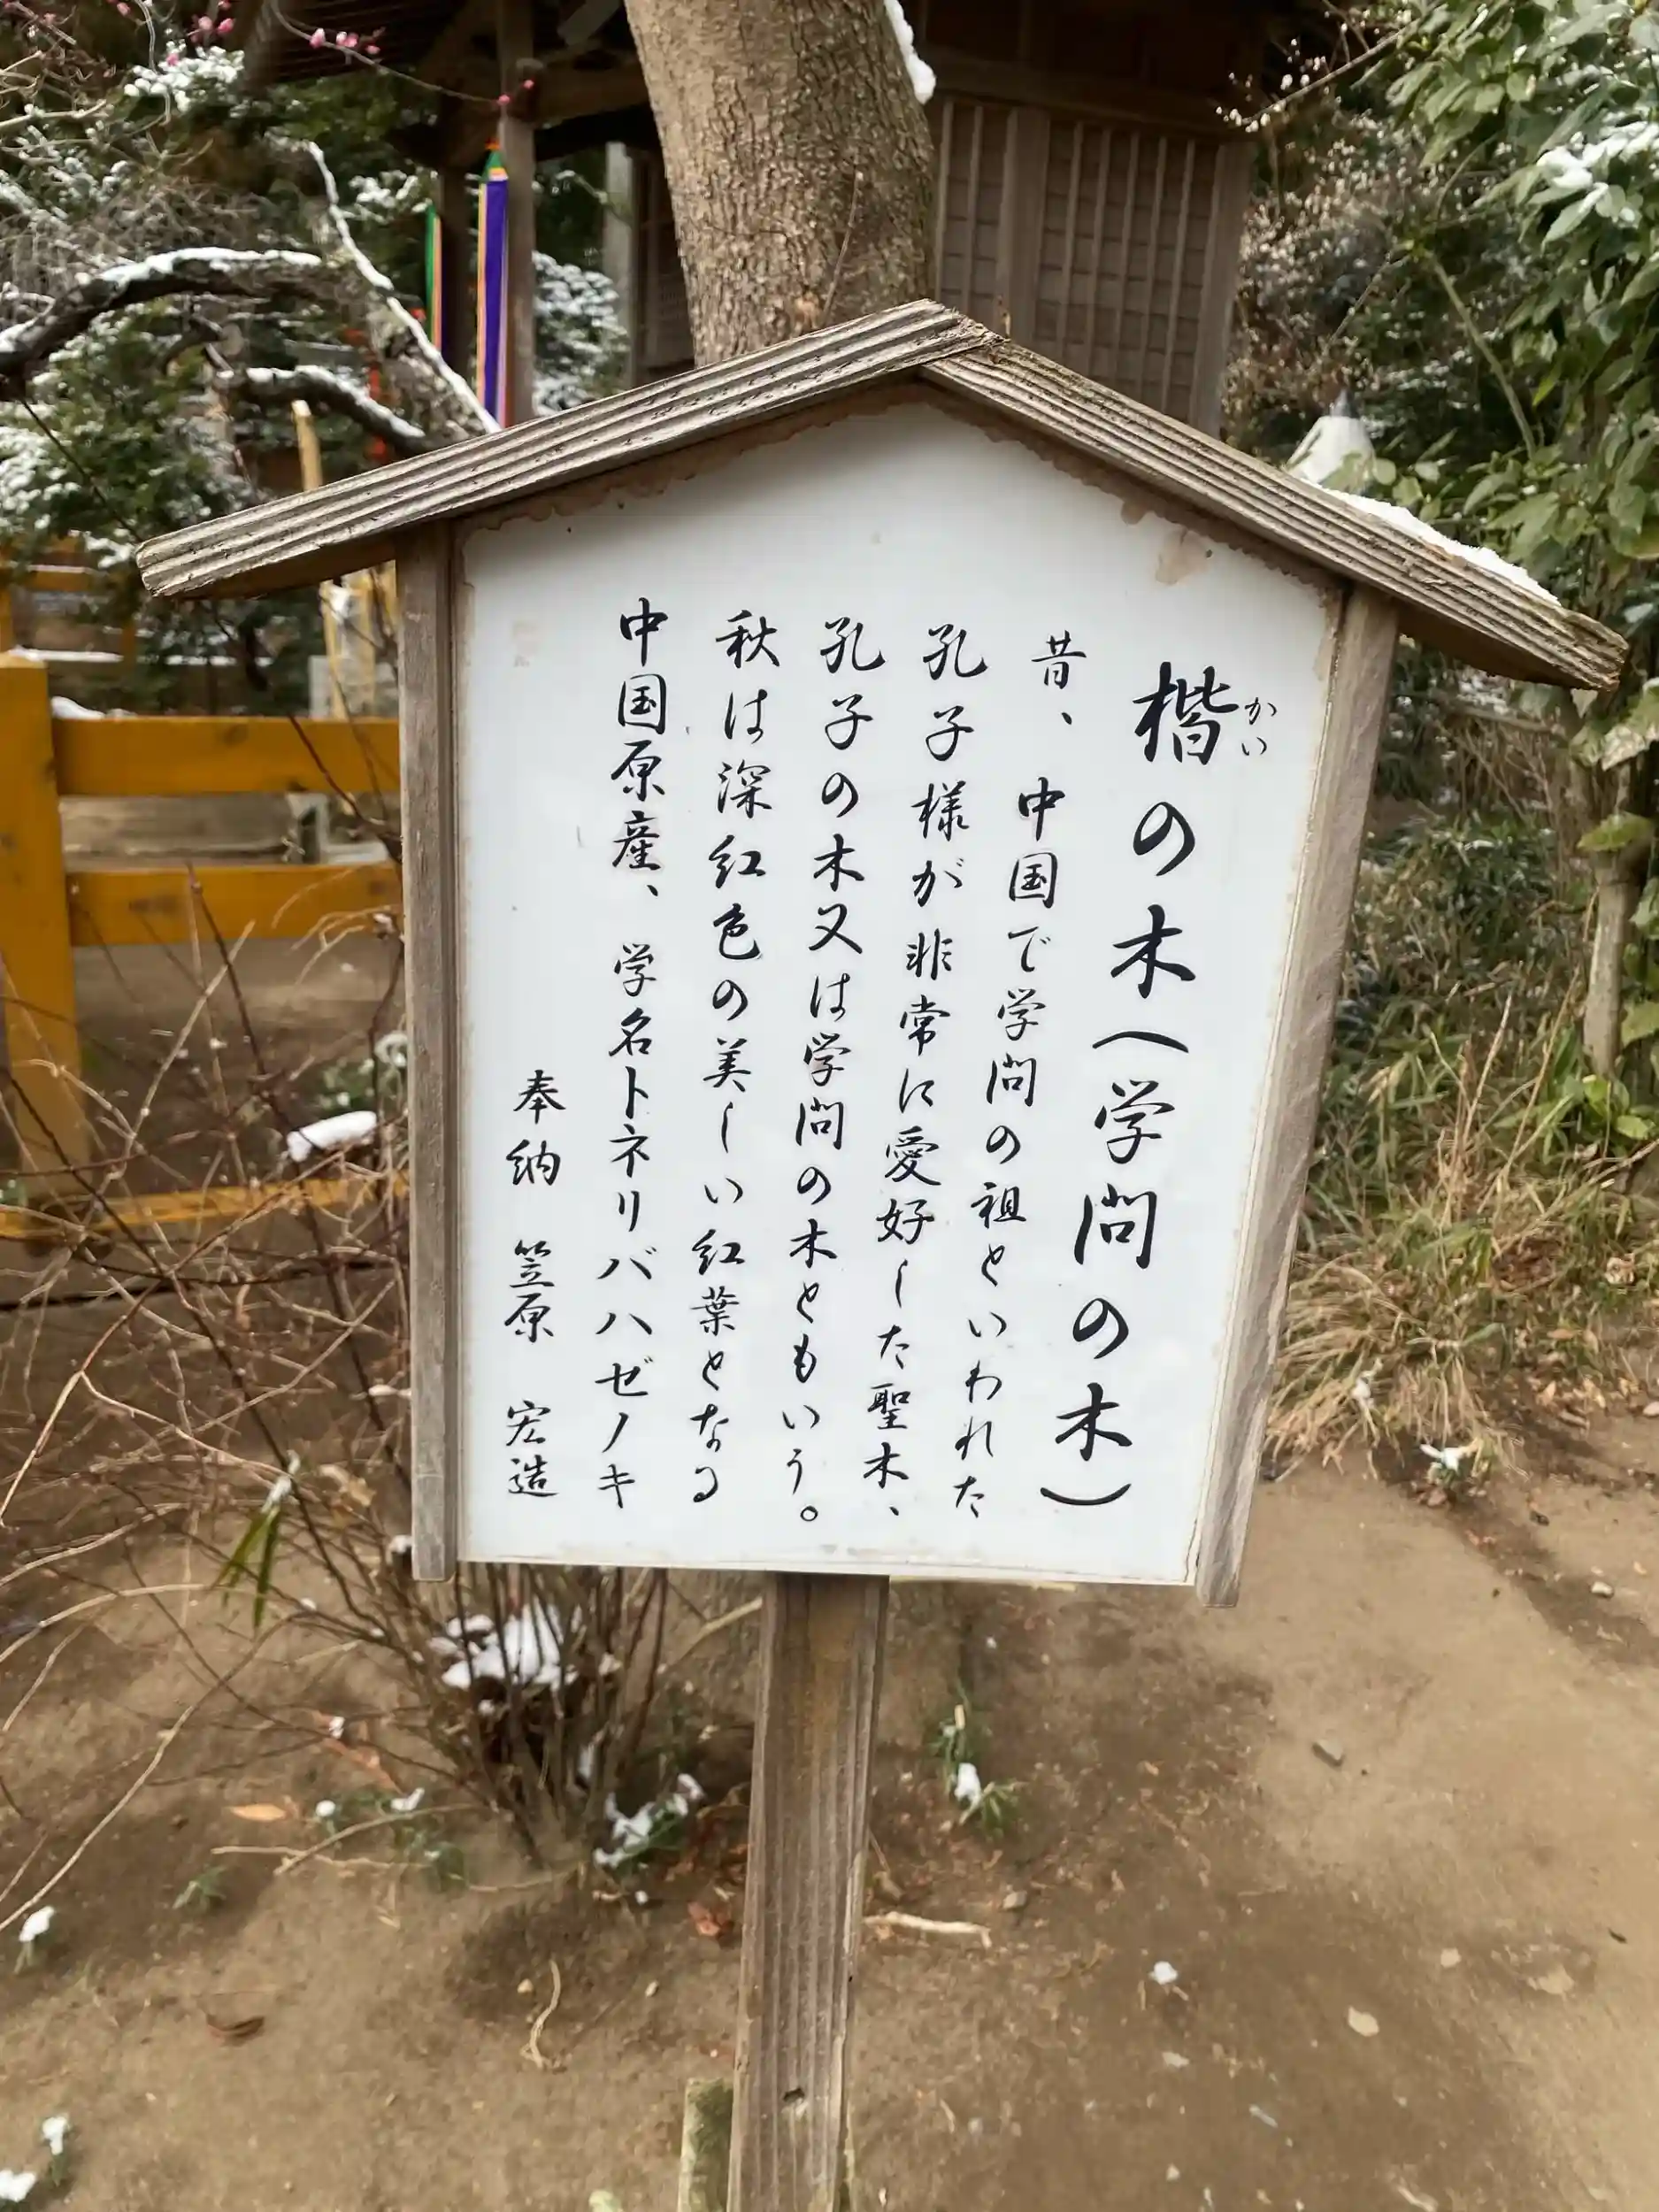 楷の木(学問の木)
かい
昔、中国で学問の祖といわれた
孔子様が非常に愛好した聖木、
孔子の木又は学問の木ともいう。
秋は深紅色の美しい紅葉となる
中国原産、学名トネリバハゼノキ
奉納 笠原 宏造